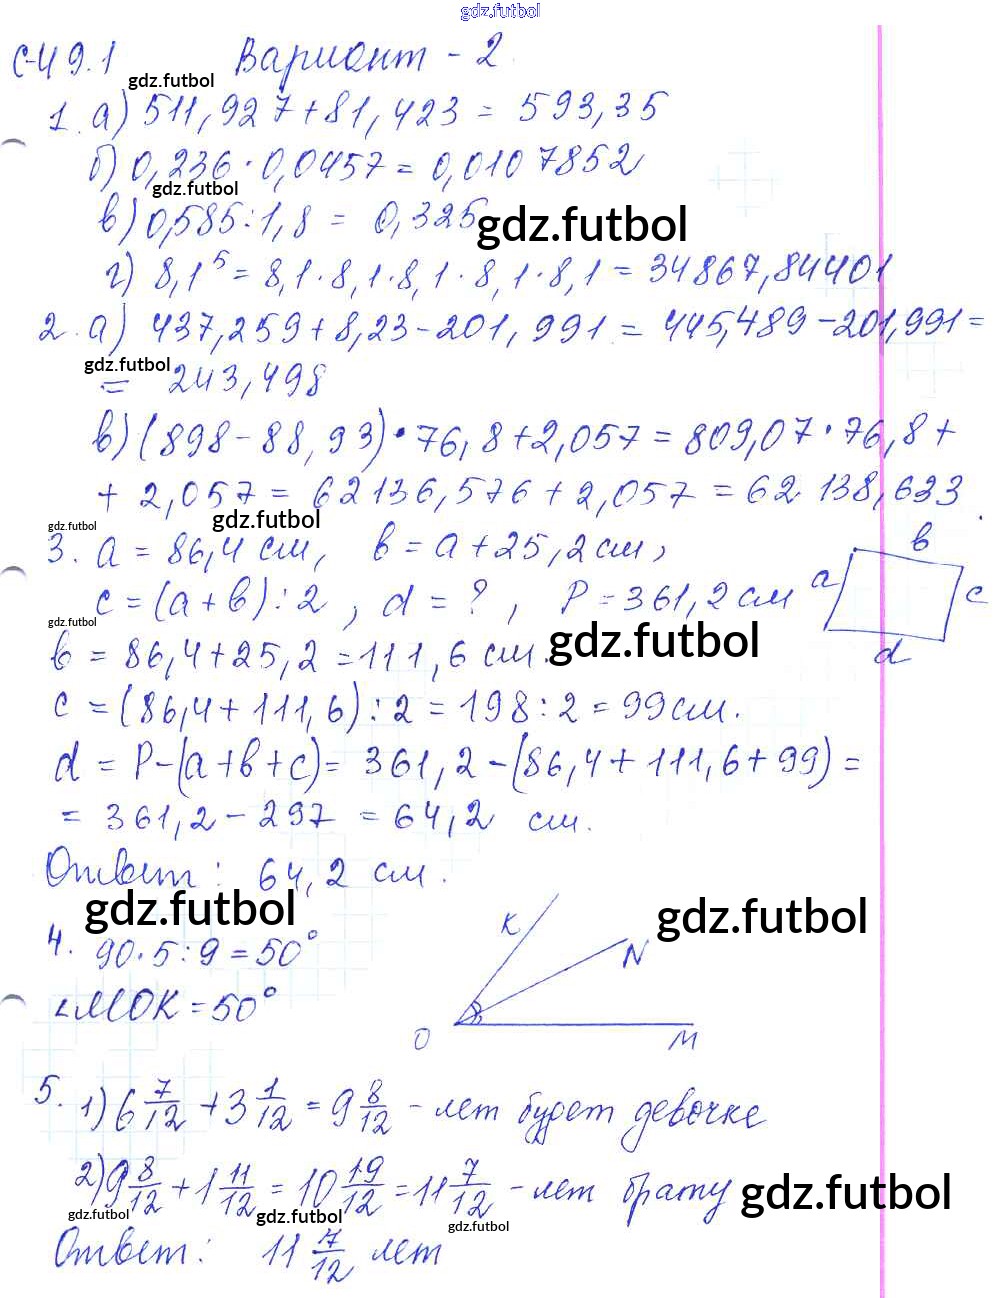 gdz.futbol
С-49.1 Вариант - 2.
gdz.futbol
1. а) 511,927+81,423 = 593,35
б) 0,236·0,0457=0,0107852
gdz.futbol
в) 0,585:1,8 = 0,325
gdz.futbol
г) 8,1⁵ = 8,1·8,1·8,1·8,1·8,1 = 34867,84401
2. а) 437,259+8,23-201,991 = 445,489-201,991=
gdz.futbol
= 243,498
в) (898-88,93)·76,8+2,057 = 809,07·76,8+
+ 2,057 = 62136,576+2,057 = 62 138,633.
gdz.futbol gdz.futbol
3. a = 86,4 см, в = а+25,2 см, в
c = (а+в):2, d = ?, P=361,2 см a c
gdz.futbol
в = 86,4+25,2=111,6 см. d
gdz.futbol
c = (86,4+111,6):2 = 198:2 = 99 см.
d = P-(а+в+с)= 361,2-(86,4+111,6+99) =
= 361,2-297 = 64,2 см.
Ответ: 64,2 см.
gdz.futbol gdz.futbol
4. 90·5:9=50° K N
∠МОК = 50° O M
5. 1) 6 7/12 + 3 1/12 = 9 8/12 - лет будет девочке
2) 9 8/12 + 1 11/12 = 10 19/12 = 11 7/12 - лет брату
gdz.futbol
gdz.futbol gdz.futbol gdz.futbol
Ответ: 11 7/12 лет